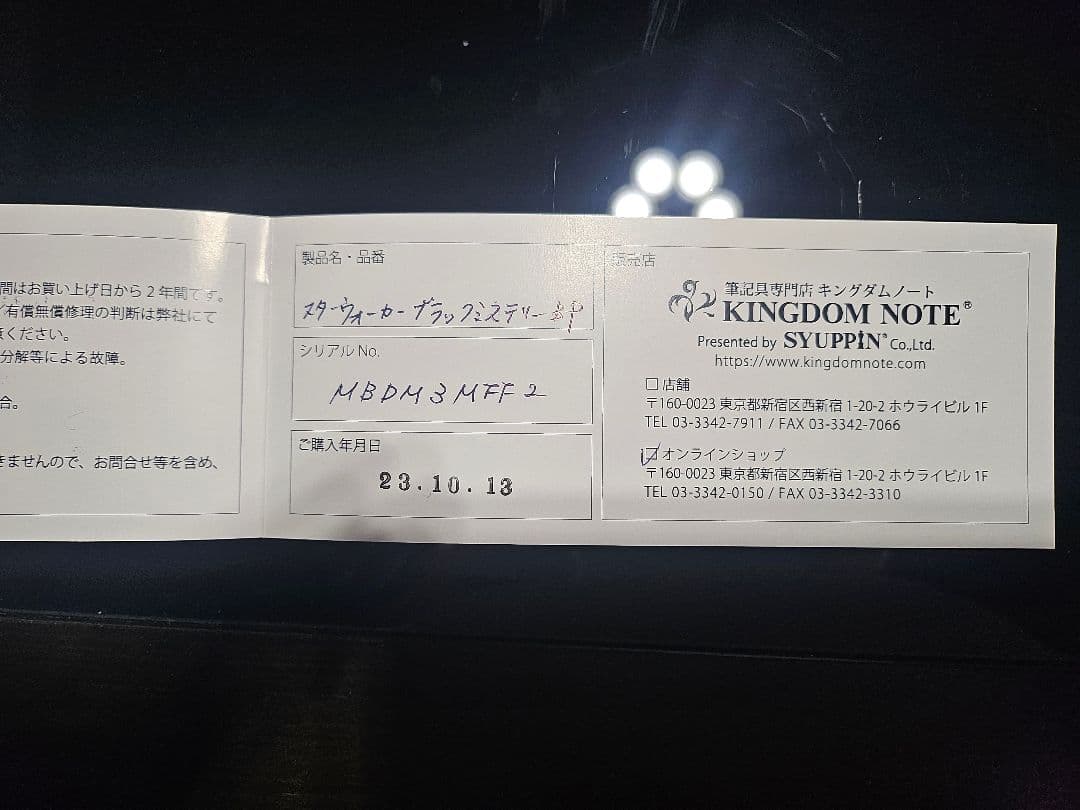 間はお買い上げ日から2年間です。
有償無償修理の判断は弊社にて
ください。
分解等による故障。
合。
きませんので、お問合せ等を含め、
製品名・品番
スターウォーカーブラックミステリー
シリアルNo.
MBDM3MFF2
ご購入年月日
23.10.13
販売店
筆記具専門店 キングダムノート
KINGDOM NOTE®
Presented by SYUPPIN® Co.,Ltd.
https://www.kingdomnote.com
□ 店舗
〒160-0023 東京都新宿区西新宿 1-20-2 ホウライビル 1F
TEL 03-3342-7911 / FAX 03-3342-7066
☑ オンラインショップ
〒160-0023 東京都新宿区西新宿 1-20-2 ホウライビル 1F
TEL 03-3342-0150 / FAX 03-3342-3310